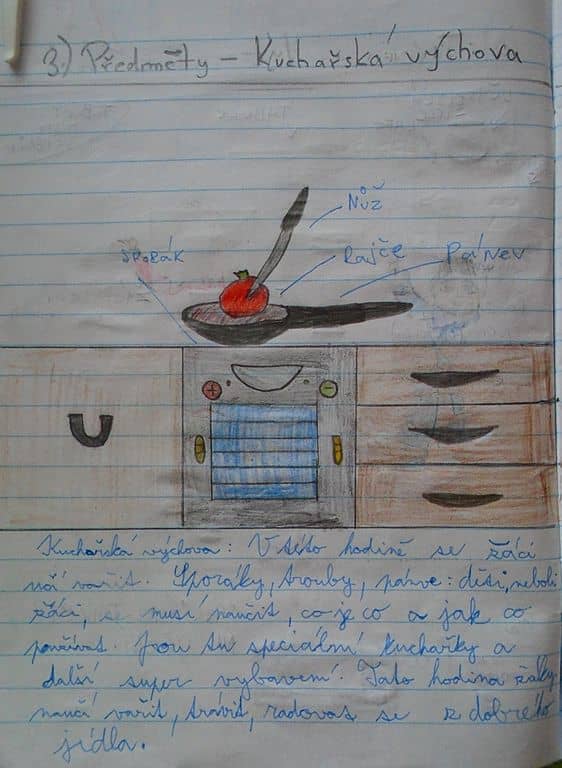 3.) Předměty - Kuchařská výchova
Nůž
SPORÁK
Rajče
PáNEV
Kuchařská výchova: V této hodině se žáci
učí vařit. Sporáky, trouby, pánve: děti, neboli
žáci, se musí naučit, co je co a jak co
používat. Jsou tu speciální kuchařky a
další super vybavení. Tato hodina žáky
naučí vařit, trávit, radovat se z dobrého
jídla.